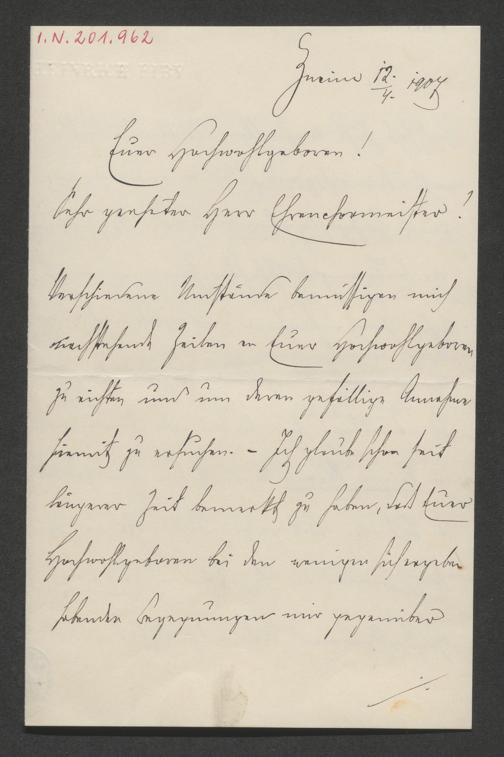 I.N. 201.962
Znaim 12./4. 1907
Euer Hochwohlgeboren!
Sehr geehrter Herr Ehrenchormeister!
Verschiedene Umstände bemüssigen mich
nachstehende Zeilen an Euer Hochwohlgeboren
zu richten und um deren gefällige Annahme
hiemit zu ersuchen. – Ich glaube schon seit
längerer Zeit bemerkt zu haben, daß Euer
Hochwohlgeboren bei den wenigen sich ergeben
habenden Begegnungen mir gegenüber